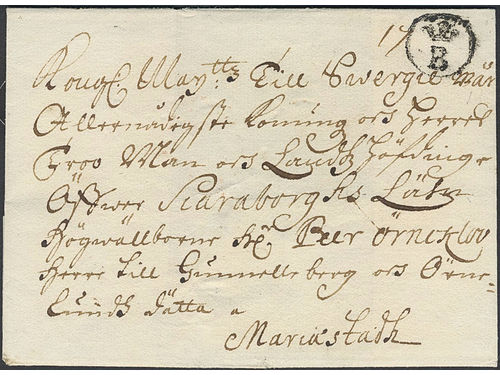 17 B
Kongl. May:ttz Till Swergie Wår
Allernådigste Konung och Herres
Troo Man och Landtz Höfdinge
Öfwer Scaraborghs Lähn
Högwällborne H:r Peer Örneklou
Herre till Gunnelleberg och Örne=
Lundh dätta a
Mariæstadh